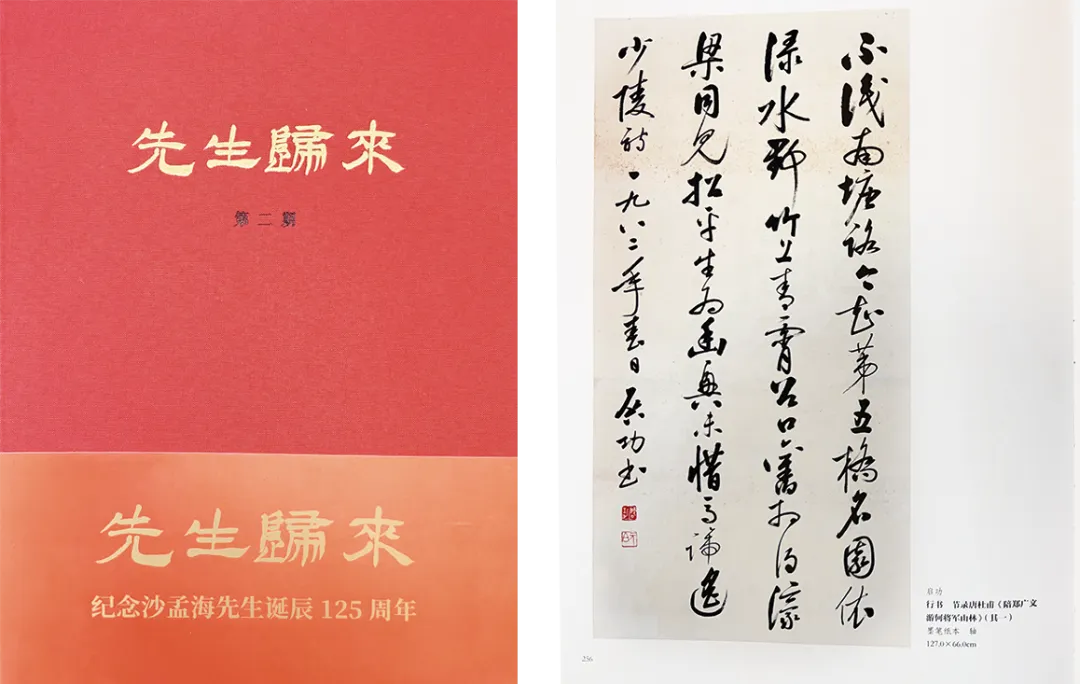 先生歸來
第二期
先生歸來
纪念沙孟海先生诞辰 125 周年
不識南塘路今知第五橋名園依
渌水野竹上青霄谷口舊相得濠
梁同見招平生為幽興未惜馬蹄遙
少陵詩 一九八二年春日 启功书
启功
行书 节录唐杜甫《陪郑广文
游何将军山林》(其一)
墨笔纸本 轴
127.0×66.0cm
256